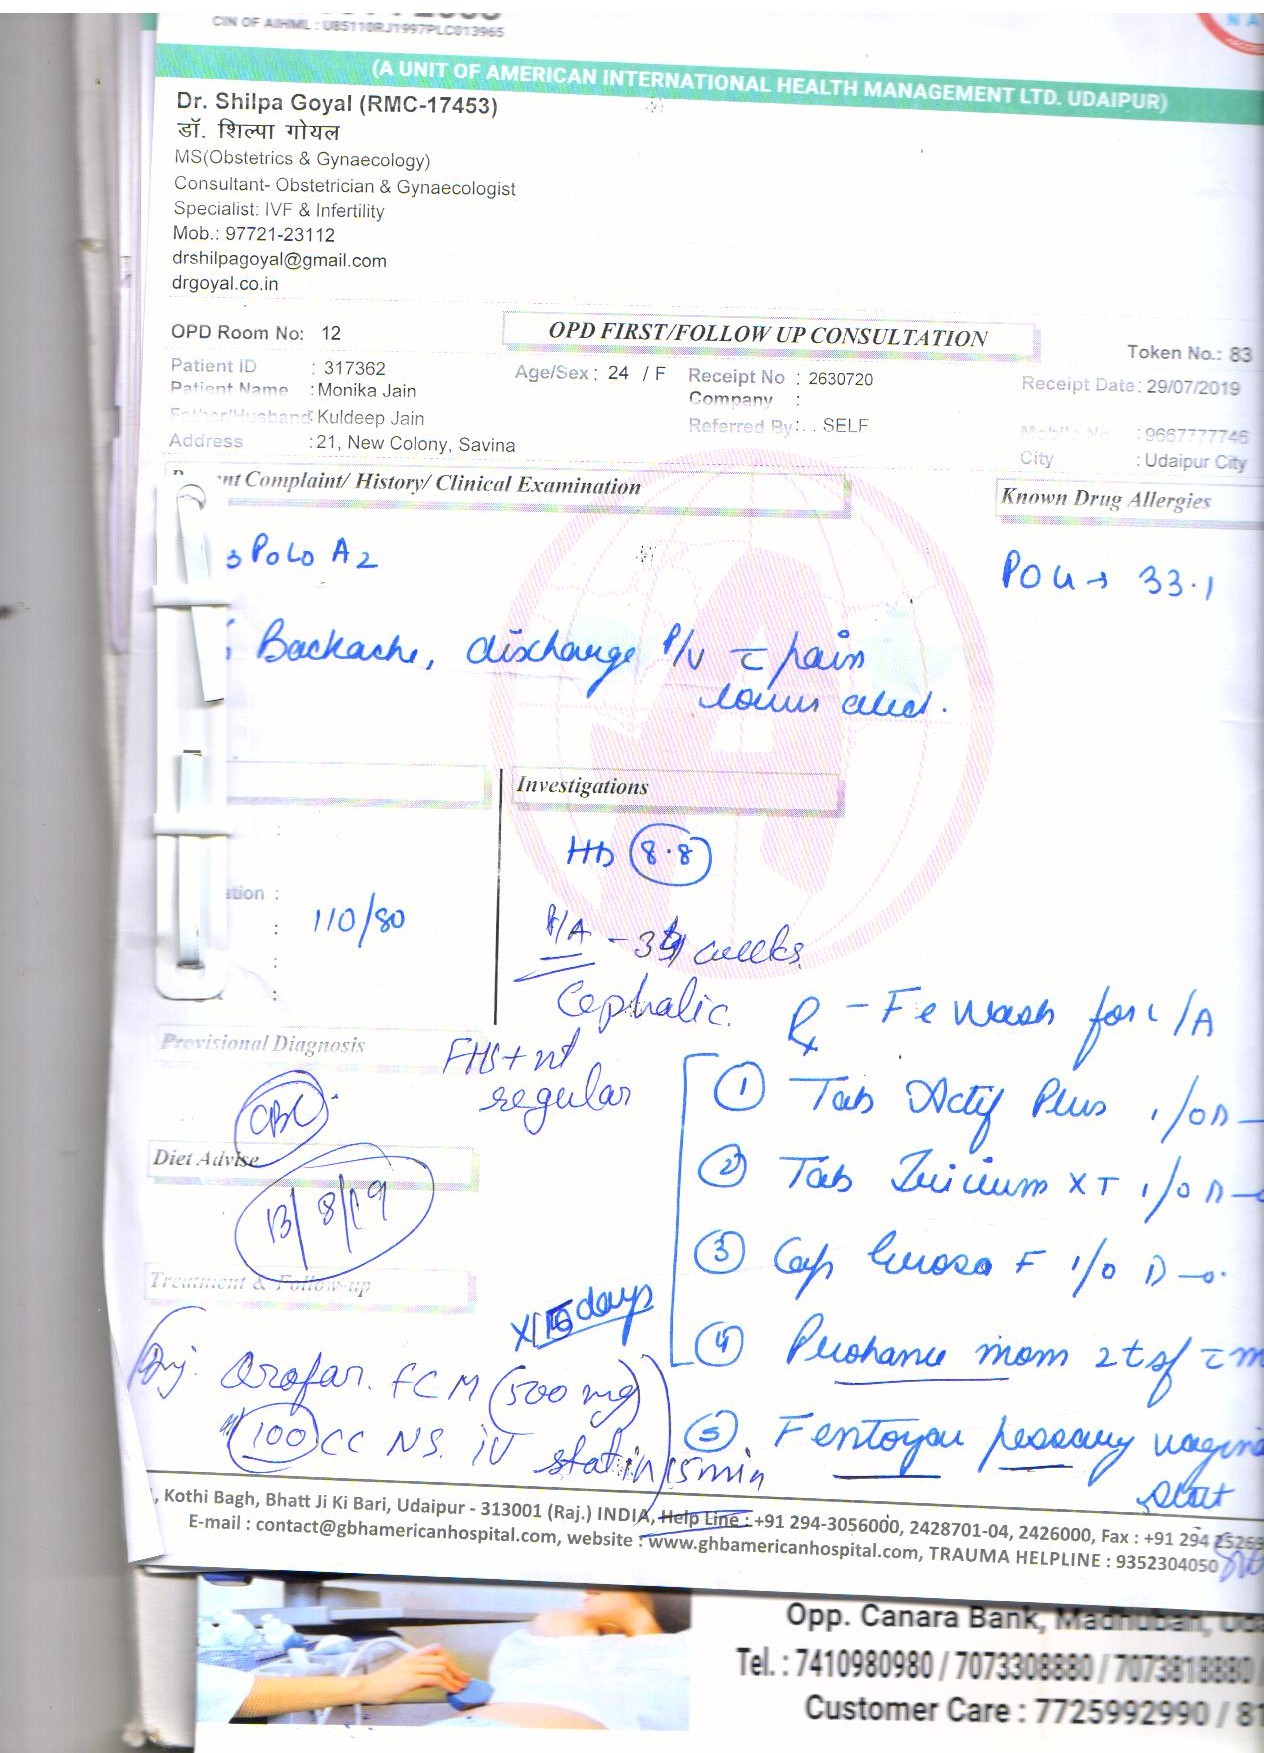 CIN OF AIHML : U85110RJ1997PLC013965
N A
(A UNIT OF AMERICAN INTERNATIONAL HEALTH MANAGEMENT LTD. UDAIPUR)
Dr. Shilpa Goyal (RMC-17453)
डॉ. शिल्पा गोयल
MS(Obstetrics & Gynaecology)
Consultant- Obstetrician & Gynaecologist
Specialist: IVF & Infertility
Mob.: 97721-23112
drshilpagoyal@gmail.com
drgoyal.co.in
OPD Room No: 12
OPD FIRST/FOLLOW UP CONSULTATION
Token No.: 83
Patient ID : 317362
Age/Sex : 24 / F
Receipt No : 2630720
Receipt Date: 29/07/2019
Patient Name : Monika Jain
Company :
Father/Husband: Kuldeep Jain
Referred By: . . SELF
Mobile No : 9667777746
Address : 21, New Colony, Savina
City : Udaipur City
nt Complaint/ History/ Clinical Examination
Known Drug Allergies
3 P0L0 A2
POG → 33.1
Backache, discharge P/V c pain
lower abd.
Investigations
Hb 8.8
ation :
: 110/80
P/A - weeks
Cephalic.
Rx - Fe Wash for L/A
Provisional Diagnosis
FHS + nt
regular
CBC
① Tab Actif Plus 1/OD
Diet Advise
② Tab XT 1/OD
13/8/19
③ Cap F 1/OD
Treatment & Follow-up
X 15 days
④ mom 2tsf c m
Inj. Orofar. FCM (500 mg)
100 CC NS. IV stat in 15 min
⑤ Fentoyou pessary vagin
Stat
, Kothi Bagh, Bhatt Ji Ki Bari, Udaipur - 313001 (Raj.) INDIA, Help Line : +91 294-3056000, 2428701-04, 2426000, Fax : +91 294
E-mail : contact@gbhamericanhospital.com, website : www.ghbamericanhospital.com, TRAUMA HELPLINE : 9352304050
Opp. Canara Bank, Madhuban, Uda
Tel. : 7410980980 / 7073308880 / 7073818880 /
Customer Care : 7725992990 / 81